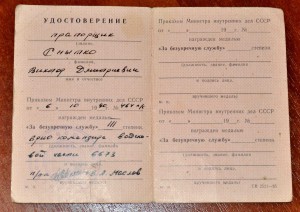 УДОСТОВЕРЕНИЕ
прапорщик
(звание)
Снытко
(фамилия)
Виктор Дмитриевич
(имя и отчество)
Приказом Министра внутренних дел СССР
от « 6 » 10 19
награжден медалью
«За безупречную службу» III степени
врио командира войско-
вой части 6683
Маслов
Приказом Министра внутренних дел СССР
от « » 19 №
награжден медалью
«За безупречную службу» степени
(должность, звание, фамилия
и подпись лица,
вручившего медаль)
Приказом Министра внутренних дел СССР
от « » 19 №
награжден медалью
«За безупречную службу» степени
(должность, звание, фамилия
и подпись лица,
вручившего медаль)